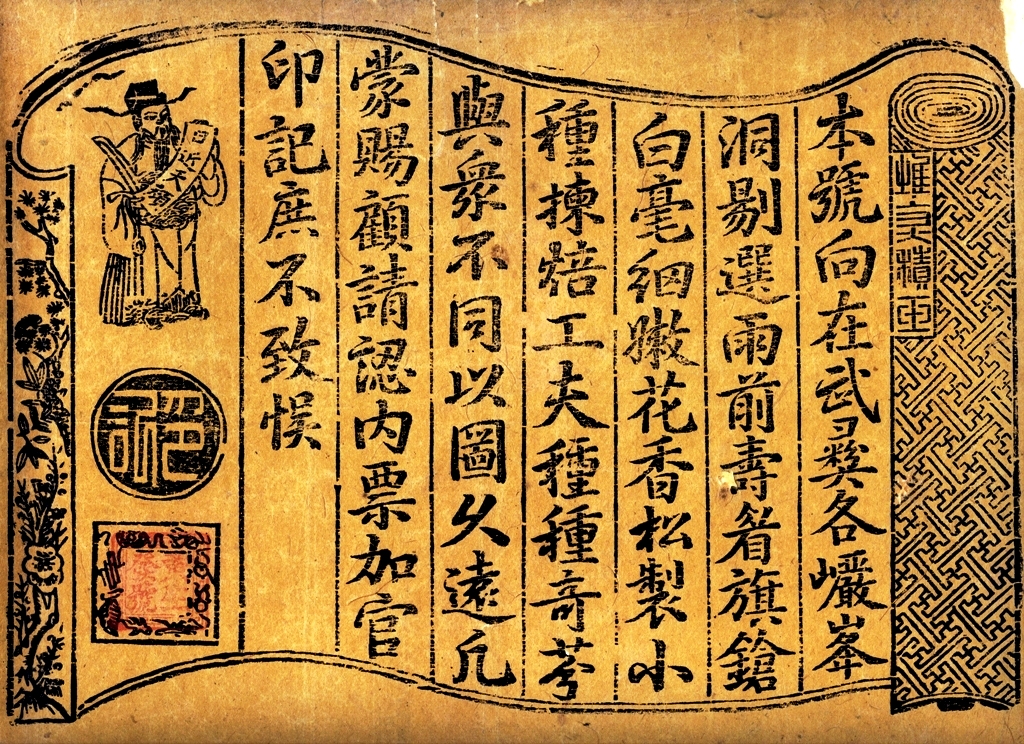 本號向在武彝各巖峯
洞剔選雨前壽眉旗鎗
白毫細嫩花香松製小
種揀焙工夫種種奇
與衆不同以圖久遠凡
蒙賜顧請認內票加官
印記庶不致悞